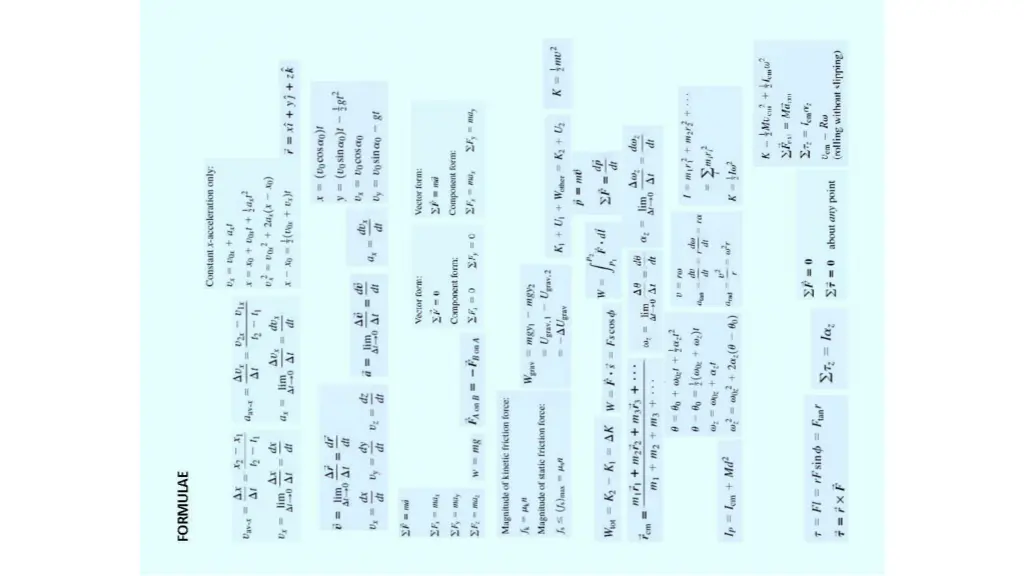 FORMULAE
v_av-x = Δx/Δt = (x₂ − x₁)/(t₂ − t₁)
v_x = lim_{Δt→0} Δx/Δt = dx/dt
a_av-x = Δv_x/Δt = (v_2x − v_1x)/(t₂ − t₁)
a_x = lim_{Δt→0} Δv_x/Δt = dv_x/dt
Constant x-acceleration only:
v_x = v_0x + a_x t
x = x₀ + v_0x t + ½a_x t²
v_x² = v_0x² + 2a_x(x − x₀)
x − x₀ = ½(v_0x + v_x)t
r⃗ = xî + yĵ + zk̂
v⃗ = lim_{Δt→0} Δr⃗/Δt = dr⃗/dt
v_x = dx/dt v_y = dy/dt v_z = dz/dt
a⃗ = lim_{Δt→0} Δv⃗/Δt = dv⃗/dt
a_x = dv_x/dt
x = (v₀ cos α₀)t
y = (v₀ sin α₀)t − ½gt²
v_x = v₀ cos α₀
v_y = v₀ sin α₀ − gt
ΣF⃗ = ma⃗
ΣF_x = ma_x
ΣF_y = ma_y
ΣF_z = ma_z
w = mg
F⃗_A on B = −F⃗_B on A
Vector form:
ΣF⃗ = 0
Component form:
ΣF_x = 0 ΣF_y = 0
Vector form:
ΣF⃗ = ma⃗
Component form:
ΣF_x = ma_x ΣF_y = ma_y
Magnitude of kinetic friction force:
f_k = μ_k n
Magnitude of static friction force:
f_s ≤ (f_s)_max = μ_s n
W_grav = mgy₁ − mgy₂
= U_grav,1 − U_grav,2
= −ΔU_grav
K₁ + U₁ + W_other = K₂ + U₂
K = ½mv²
W_tot = K₂ − K₁ = ΔK
W = F⃗ · s⃗ = Fs cos ϕ
W = ∫_{P₁}^{P₂} F⃗ · dl⃗
p⃗ = mv⃗
ΣF⃗ = dp⃗/dt
r⃗_cm = (m₁r⃗₁ + m₂r⃗₂ + m₃r⃗₃ + ···)/(m₁ + m₂ + m₃ + ···)
ω_z = lim_{Δt→0} Δθ/Δt = dθ/dt
α_z = lim_{Δt→0} Δω_z/Δt = dω_z/dt
θ = θ₀ + ω_0z t + ½α_z t²
θ − θ₀ = ½(ω_0z + ω_z)t
ω_z = ω_0z + α_z t
ω_z² = ω_0z² + 2α_z(θ − θ₀)
v = rω
a_tan = dv/dt = r dω/dt = rα
a_rad = v²/r = ω²r
I = m₁r₁² + m₂r₂² + ···
= Σ m_i r_i²
K = ½Iω²
I_P = I_cm + Md²
K = ½Mv_cm² + ½I_cm ω²
ΣF⃗_ext = Ma⃗_cm
Στ_z = I_cm α_z
v_cm = Rω
(rolling without slipping)
τ = Fl = rF sin ϕ = F_tan r
τ⃗ = r⃗ × F⃗
Στ_z = Iα_z
ΣF⃗ = 0
Στ⃗ = 0 about any point